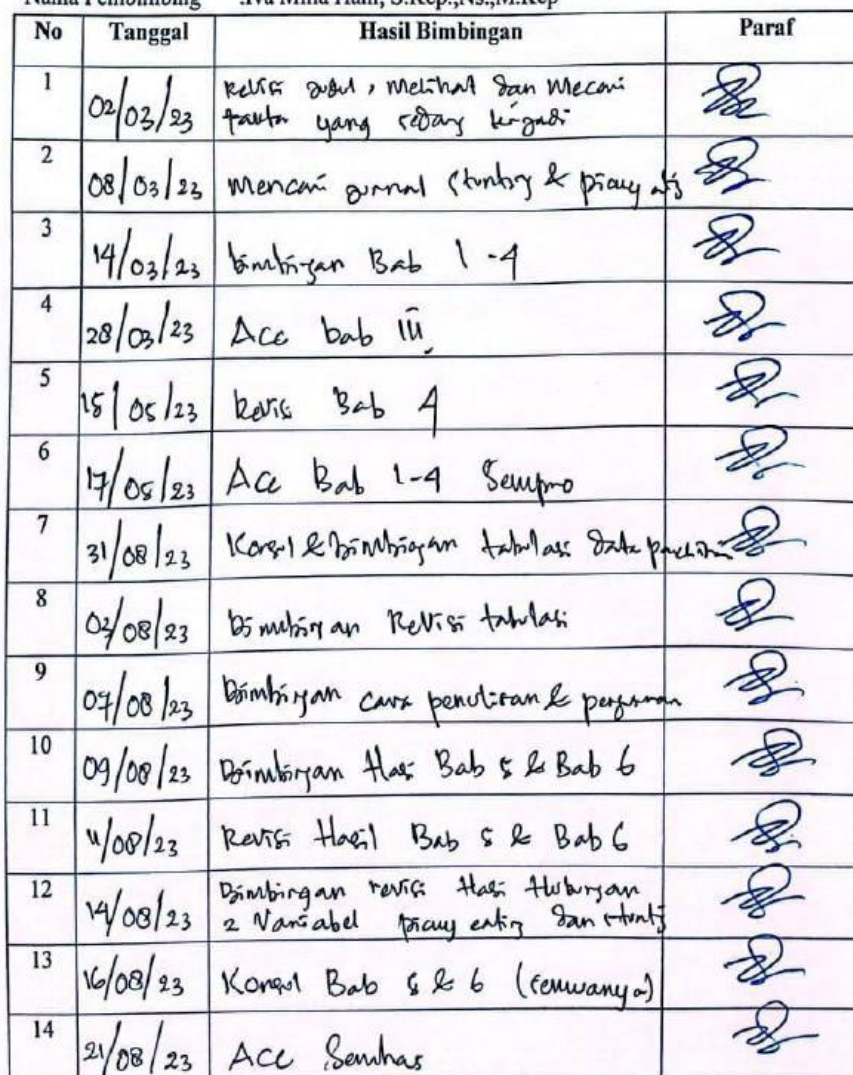 No Tanggal Hasil Bimbingan Paraf
1 02/03/23 Revisi judul, Melihat dan Mecari
yang sedang terjadi
2 08/03/23 Mencari jurnal Stunting & picky
3 14/03/23 bimbingan Bab 1-4
4 28/03/23 Acc bab III
5 15/05/23 Revisi Bab 4
6 17/05/23 Acc Bab 1-4 Sempro
7 31/08/23 Konsul & bimbingan tabulasi data penelitian
8 /08/23 Bimbingan Revisi tabulasi
9 07/08/23 Bimbingan cara penulisan &
10 09/08/23 Bimbingan Hasil Bab 5 & Bab 6
11 11/08/23 Revisi Hasil Bab 5 & Bab 6
12 14/08/23 Bimbingan revisi Hasil Hubungan
2 Variabel picky eating dan stunting
13 16/08/23 Konsul Bab 5 & 6 (semuanya)
14 21/08/23 ACC Semhas